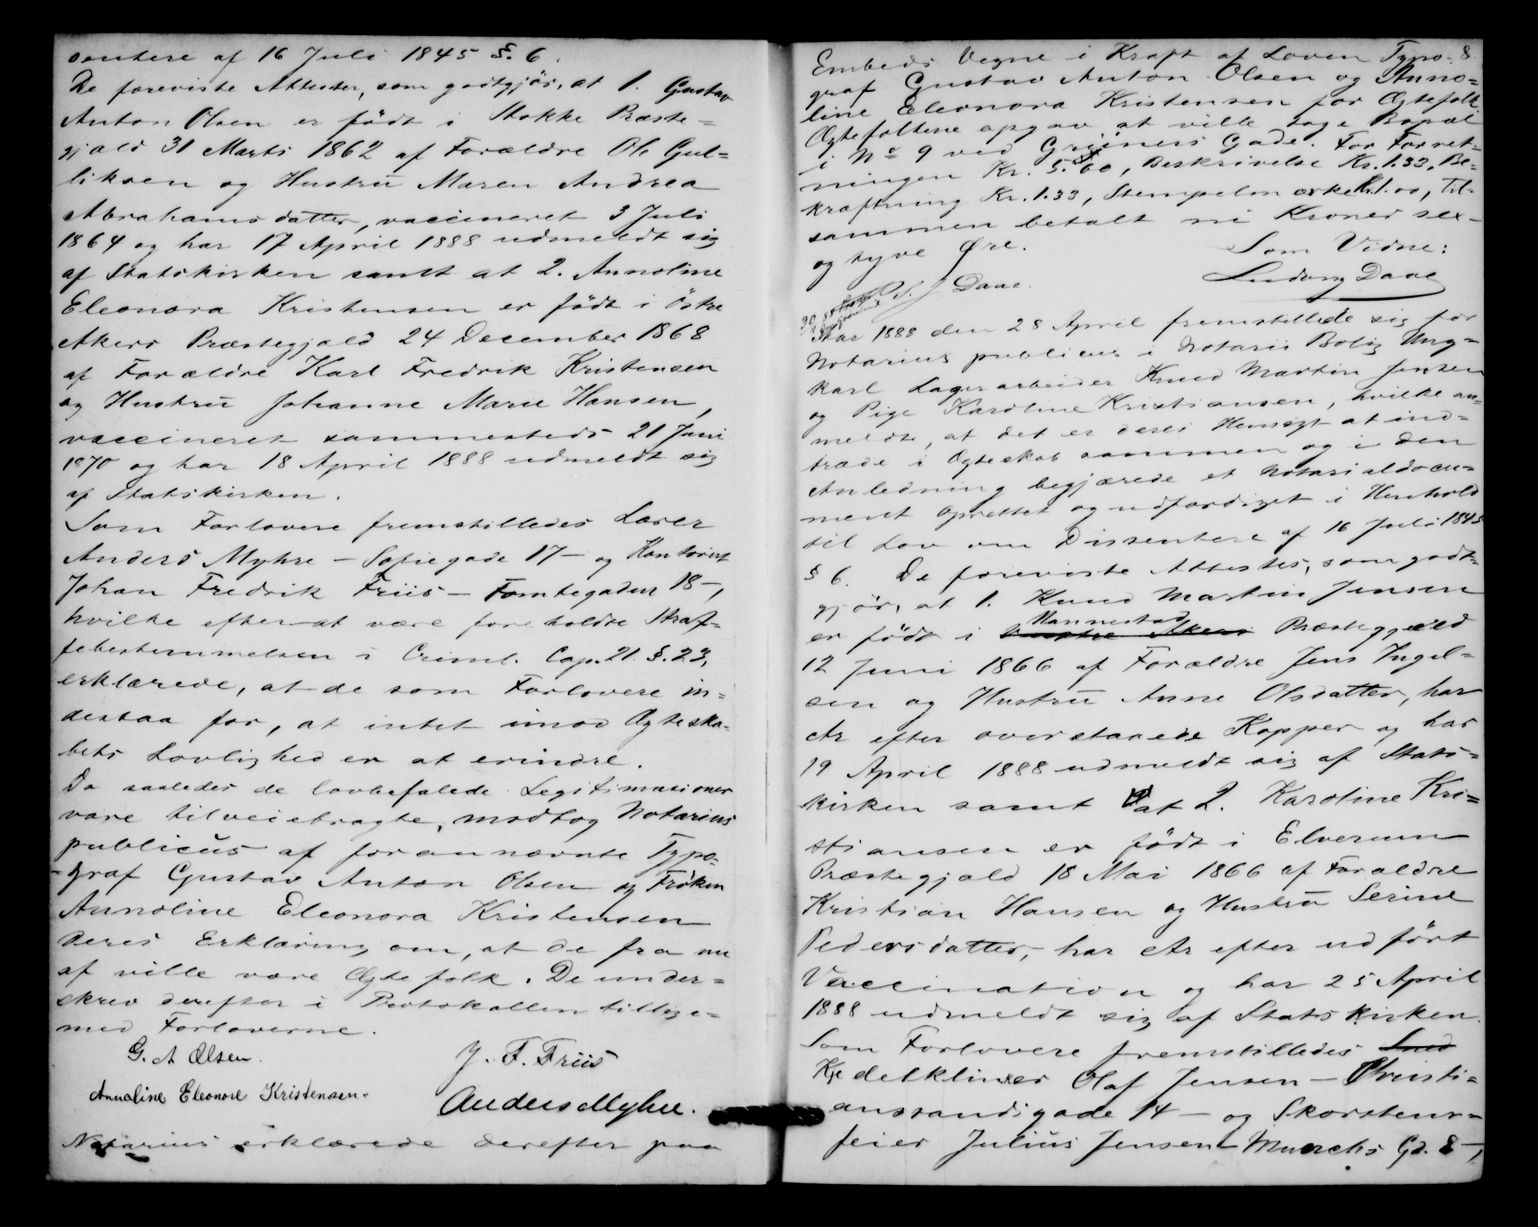 sentere af 16 Juli 1845 §. 6.
De foreviste Attester, som godtgjör, at 1. Gustav
Anton Olsen er född i Stokke Præste-
gjæld 31 Marts 1862 af Forældre Ole Gul-
liksen og Hustru Maren Andrea
Abrahamsdatter, vaccineret 3 Juli
1864 og har 17 April 1888 udmeldt sig
af Statskirken samt at 2. Annoline
Eleonora Kristensen er född i Östre
Akers Præstegjæld 24 December 1868
af Forældre Karl Fredrik Kristensen
og Hustru Johanne Marie Hansen,
vaccineret sammesteds 21 Juni
1870 og har 18 April 1888 udmeldt sig
af Statskirken.
Som Forlovere fremstilledes Lærer
Anders Myhre – Sofiegade 17 – og Kontorist
Johan Fredrik Friis – Tomtegaden 18 –,
hvilke efter at være foreholdte Straf-
febestemmelsen i Criml. Cap. 21 §. 23,
erklærede, at de som Forlovere in-
destaa for, at intet imod Ægteska-
bets Lovlighed er at erindre.
Da saaledes de lovbefalede Legitimationer
vare tilveiebragte, modtog Notarius
publicus af forannævnte Typo-
graf Gustav Anton Olsen og Fröken
Annoline Eleonora Kristensen
Deres Erklæring om, at de fra nu
af ville være Ægtefolk. De under-
skrev derefter i Protokollen tillige-
med Forloverne.
G. A Olsen. J. F. Friis
Annoline Eleonore Kristensen. Anders Myhre.
Notarius erklærede derefter paa
8
Embeds Vegne i Kraft af Loven Typo-
graf Gustav Anton Olsen og Anno-
line Eleonora Kristensen for Ægtefolk.
Ægtefolkene opgav at ville tage Bopæl
i No 9 ved Grüners Gade. For Forret-
ningen Kr. 5.60, Beskrivelse Kr. 1.33, Be-
kræftning Kr. 1.33, Stempelmærke Kr. 1.00, Til-
sammen betalt ni Kroner sex-
og tyve Øre.
Som Vidne:
Ludvig Daae
Daae.
Aar 1888 den 28 April fremstillede sig for
Notarius publicus i Notarii Bolig Ung-
karl Lagerarbeider Knud Martin Jensen
og Pige Karoline Kristiansen, hvilke an-
meldte, at det er deres Hensigt at ind-
træde i Ægteskab sammen og i den
Anledning begjærede et Notarialdocu-
ment oprettet og udfærdiget i Henhold
til Lov om Dissentere af 16 Juli 1845
§ 6. De foreviste Attester, som godt-
gjör, at 1. Knud Martin Jensen
er född i Nannestad Præstegjæld
12 Juni 1866 af Forældre Jens Ingel-
sen og Hustru Anne Olsdatter, har
Ar efter overstaaede Kopper og har
19 April 1888 udmeldt sig af Stats-
kirken samt at 2. Karoline Kri-
stiansen er född i Elverum
Præstegjæld 18 Mai 1866 af Forældre
Kristian Hansen og Hustru Serine
Pedersdatter, har Ar efter udfört
Vaccination og har 25 April
1888 udmeldt sig af Statskirken.
Som Forlovere fremstilledes
Kjedelklinker Olaf Jensen – Christi-
anssandsgade 14 – og Skorstens-
feier Julius Jensen – Munchs Gd. 8 –,